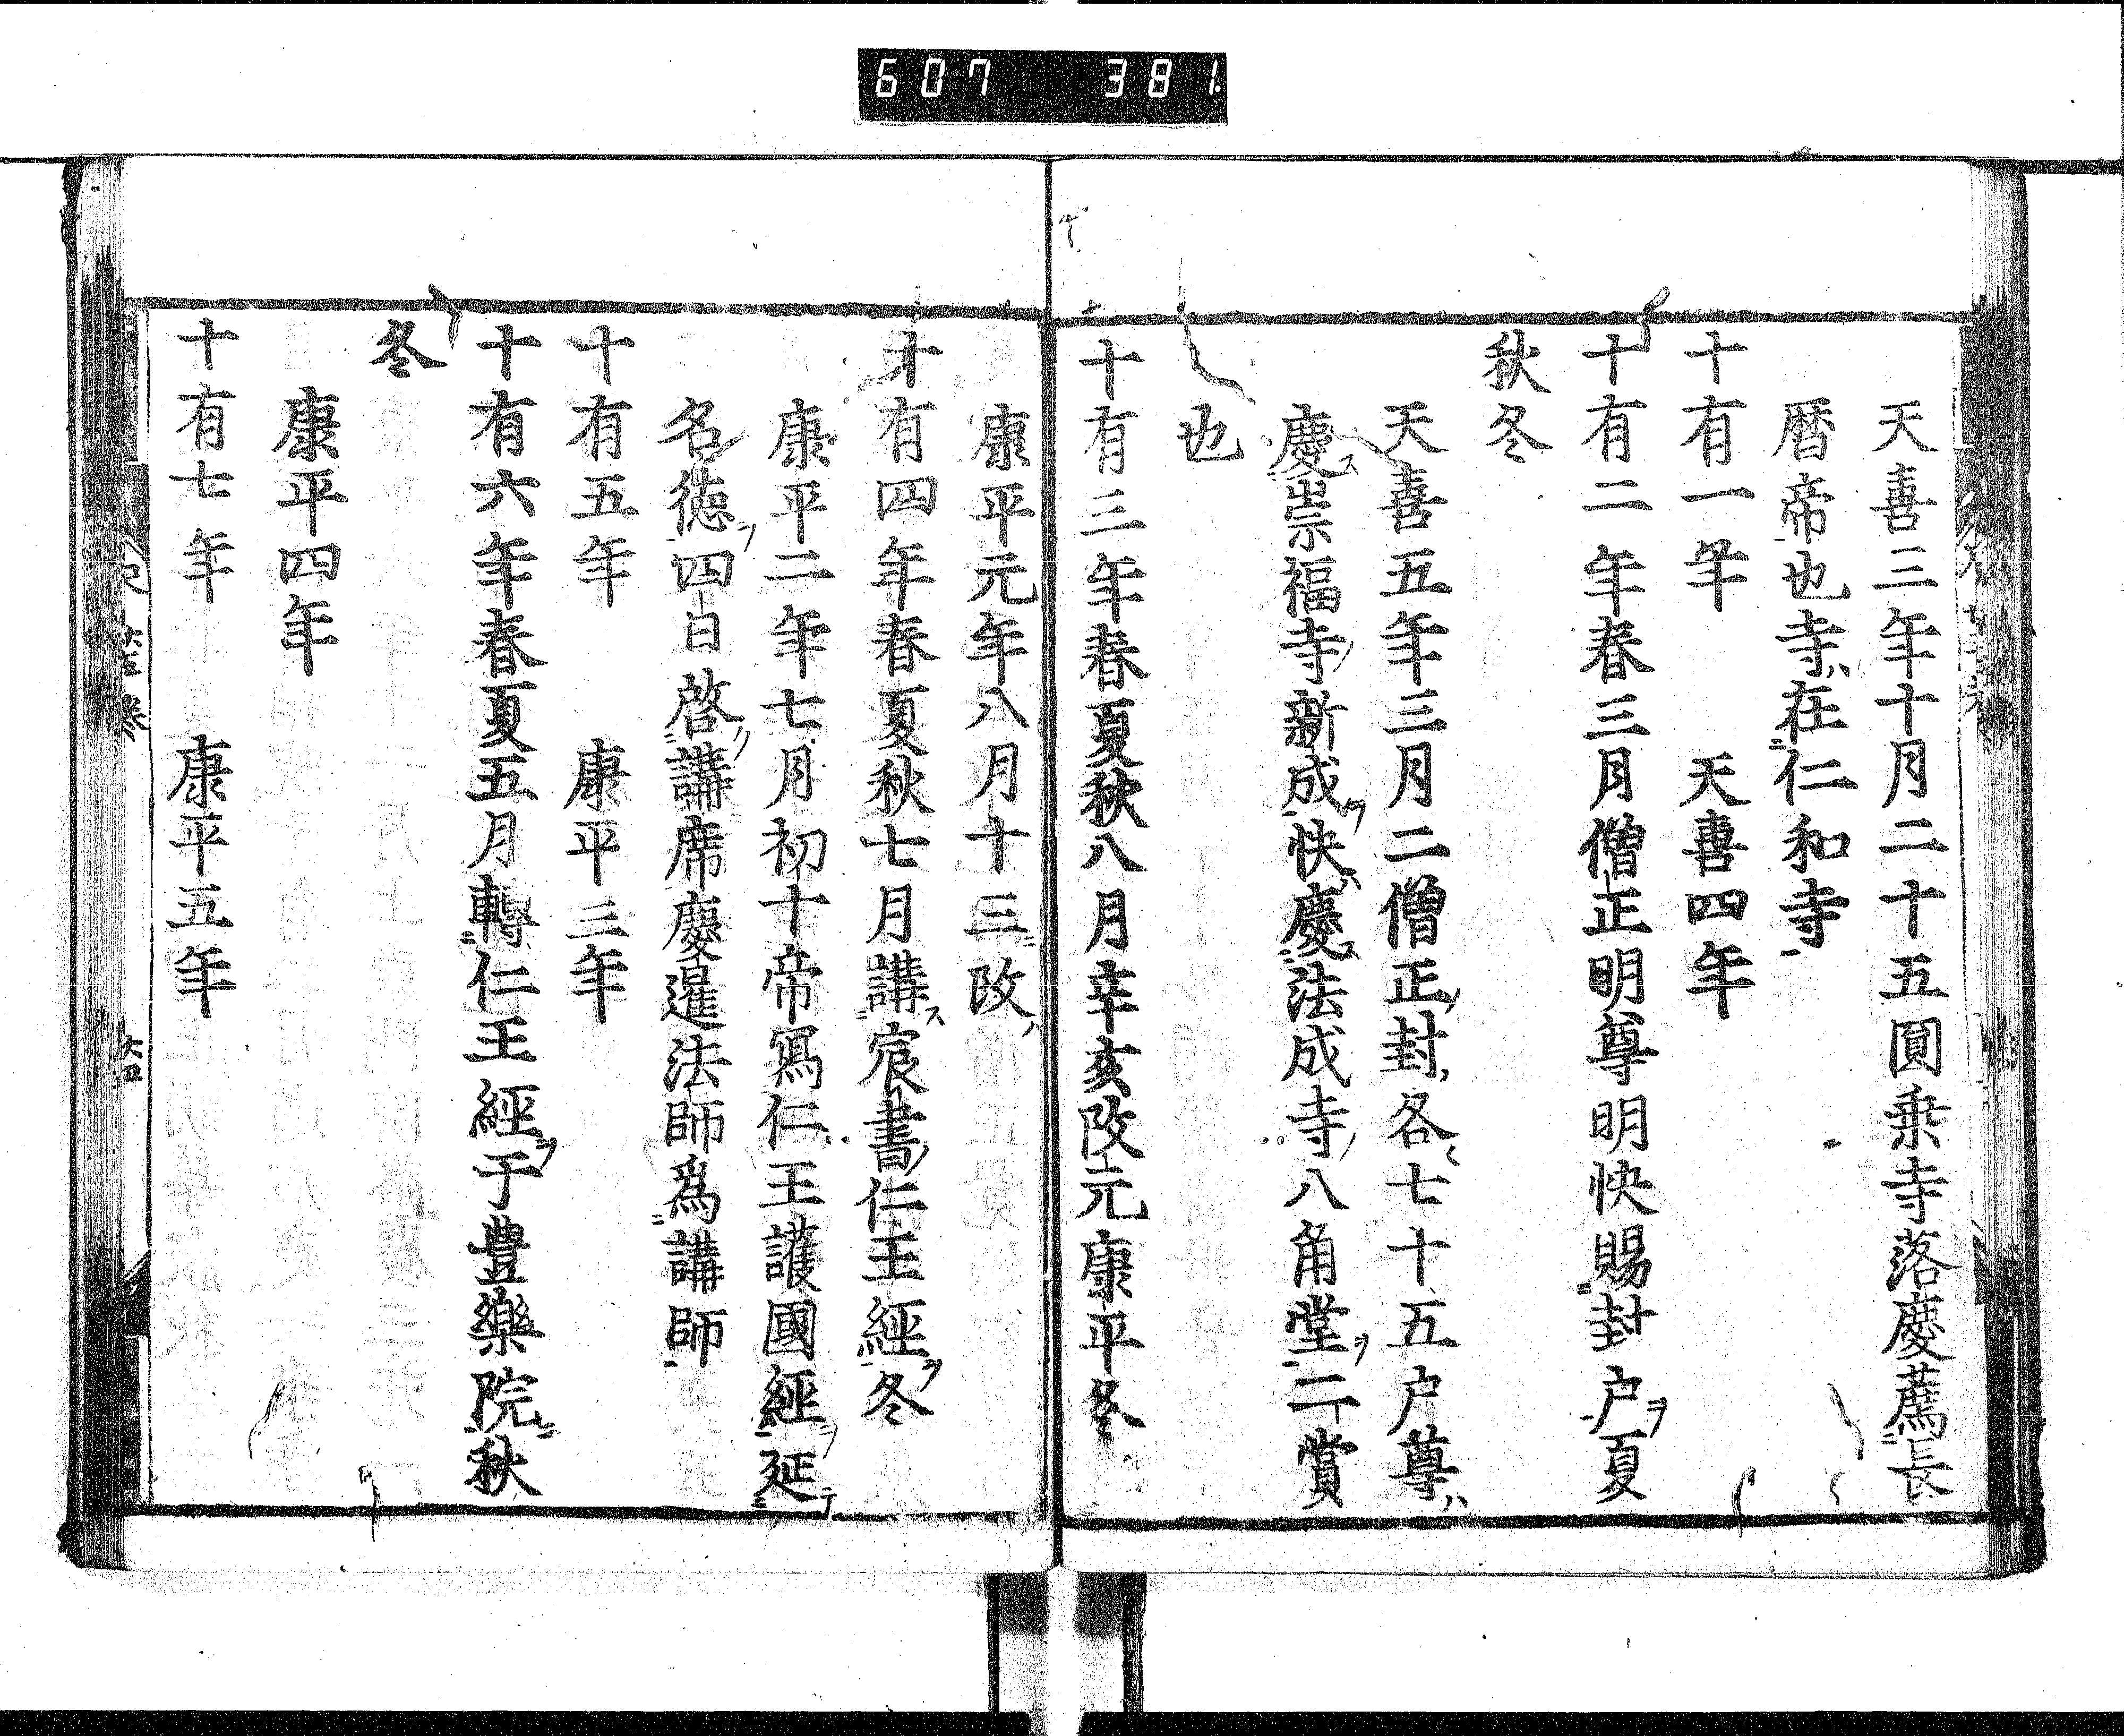 607 381
天喜三年十月二十五圓乗寺落慶薦長
暦帝也寺在仁和寺
十有一年 天喜四年
十有二年春三月僧正明尊明快賜封户夏
秋冬
天喜五年三月二僧正封各七十五户尊
慶崇福寺新成快慶法成寺八角堂二賞
也
十有三年春夏秋八月辛亥改元康平冬
康平元年八月十三改
十有四年春夏秋七月講宸書仁王經冬
康平二年七月初十帝寫仁王護國經延
名德四日啓講席慶暹法師爲講師
十有五年 康平三年
十有六年春夏五月轉仁王經于豊樂院秋
冬
康平四年
十有七年 康平五年